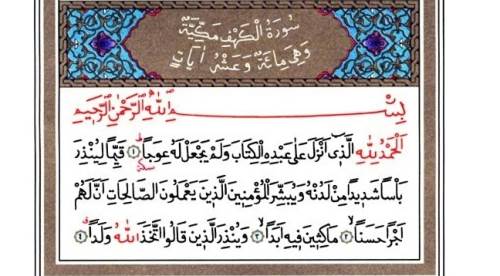 سُورَةُ الْكَهْفِ مَكِّيَّةٌ
وَهِيَ مِائَةٌ وَعَشْرُ اٰيَاتٍ
بِسْمِ اللّٰهِ الرَّحْمٰنِ الرَّحِيمِ
اَلْحَمْدُ لِلّٰهِ الَّذِى اَنْزَلَ عَلٰى عَبْدِهِ الْكِتَابَ وَلَمْ يَجْعَلْ لَهُ عِوَجًا ﴿١﴾ قَيِّمًا لِيُنْذِرَ
بَأْسًا شَدِيدًا مِنْ لَدُنْهُ وَيُبَشِّرَ الْمُؤْمِنِينَ الَّذِينَ يَعْمَلُونَ الصَّالِحَاتِ اَنَّ لَهُمْ
اَجْرًا حَسَنًا ﴿٢﴾ مَاكِثِينَ فِيهِ اَبَدًا ﴿٣﴾ وَيُنْذِرَ الَّذِينَ قَالُوا اتَّخَذَ اللّٰهُ وَلَدًا ﴿٤﴾